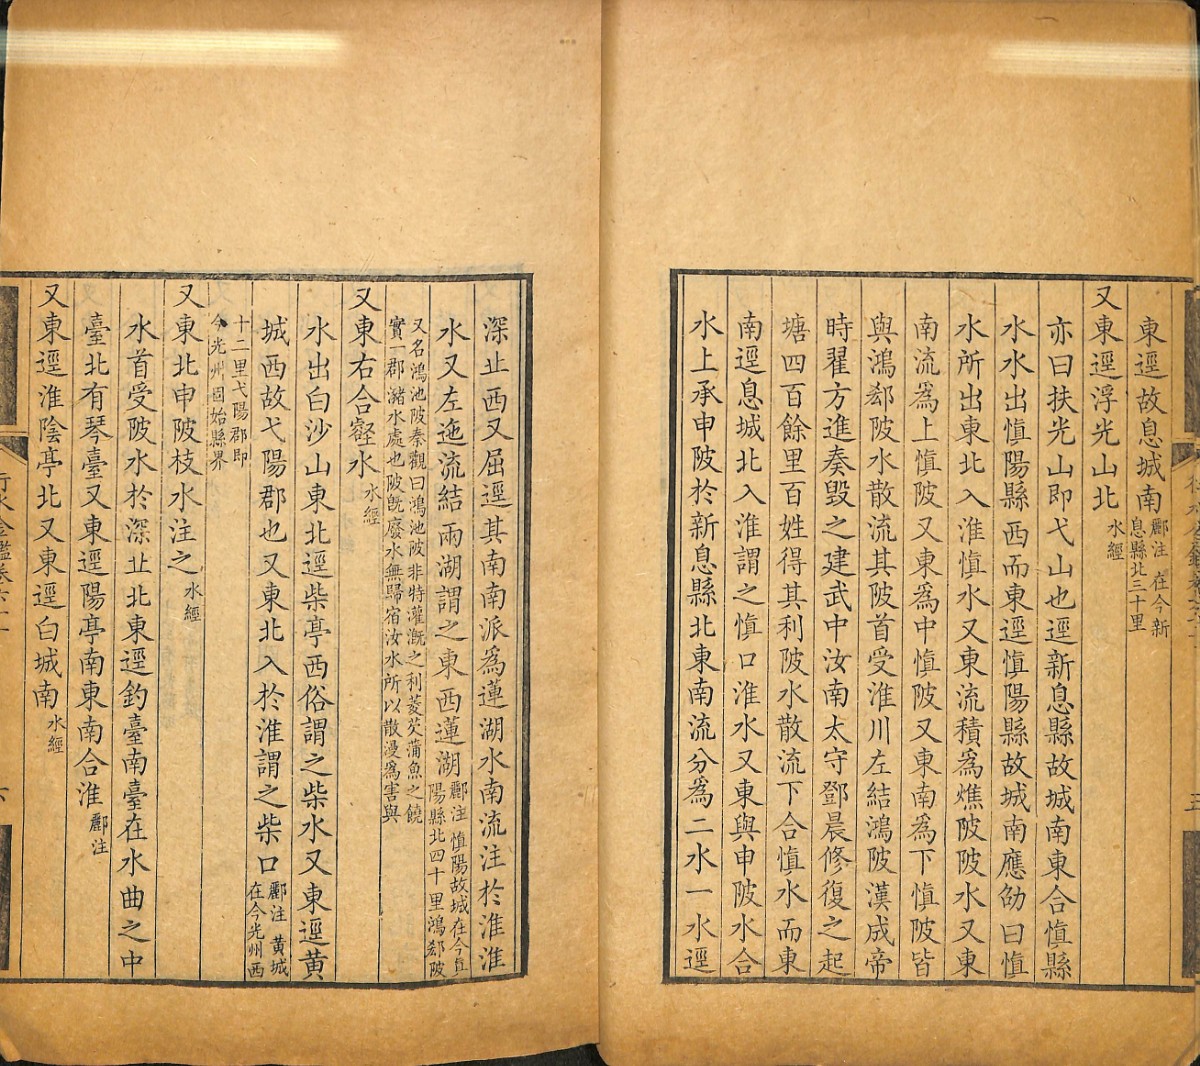 東逕故息城南酈注 在今新息縣北三十里
又東逕浮光山北水經
亦曰扶光山即弋山也逕新息縣故城南東合慎縣
水水出慎陽縣西而東逕慎陽縣故城南應劭曰慎
水所出東北入淮慎水又東流積爲燋陂陂水又東
南流爲上慎陂又東爲中慎陂又東南爲下慎陂皆
與鴻郄陂水散流其陂首受淮川左結鴻陂漢成帝
時翟方進奏毀之建武中汝南太守鄧晨修復之起
塘四百餘里百姓得其利陂水散流下合慎水而東
南逕息城北入淮謂之慎口淮水又東與申陂水合
水上承申陂於新息縣北東南流分爲二水一水逕
深丠西又屈逕其南南派爲蓮湖水南流注於淮淮
水又左迤流結兩湖謂之東西蓮湖酈注 慎陽故城在今眞陽縣北四十里鴻郄陂
又名鴻池陂秦觀曰鴻池陂非特灌漑之利菱芡蒲魚之饒
實一郡瀦水處也陂旣廢水無歸宿汝水所以散漫爲害與
又東右合壑水水經
水出白沙山東北逕柴亭西俗謂之柴水又東逕黄
城西故弋陽郡也又東北入於淮謂之柴口酈注 黄城在今光州西
十二里弋陽郡即
今光州固始縣界
又東北申陂枝水注之水經
水首受陂水於深丠北東逕釣臺南臺在水曲之中
臺北有琴臺又東逕陽亭南東南合淮酈注
又東逕淮陰亭北又東逕白城南水經